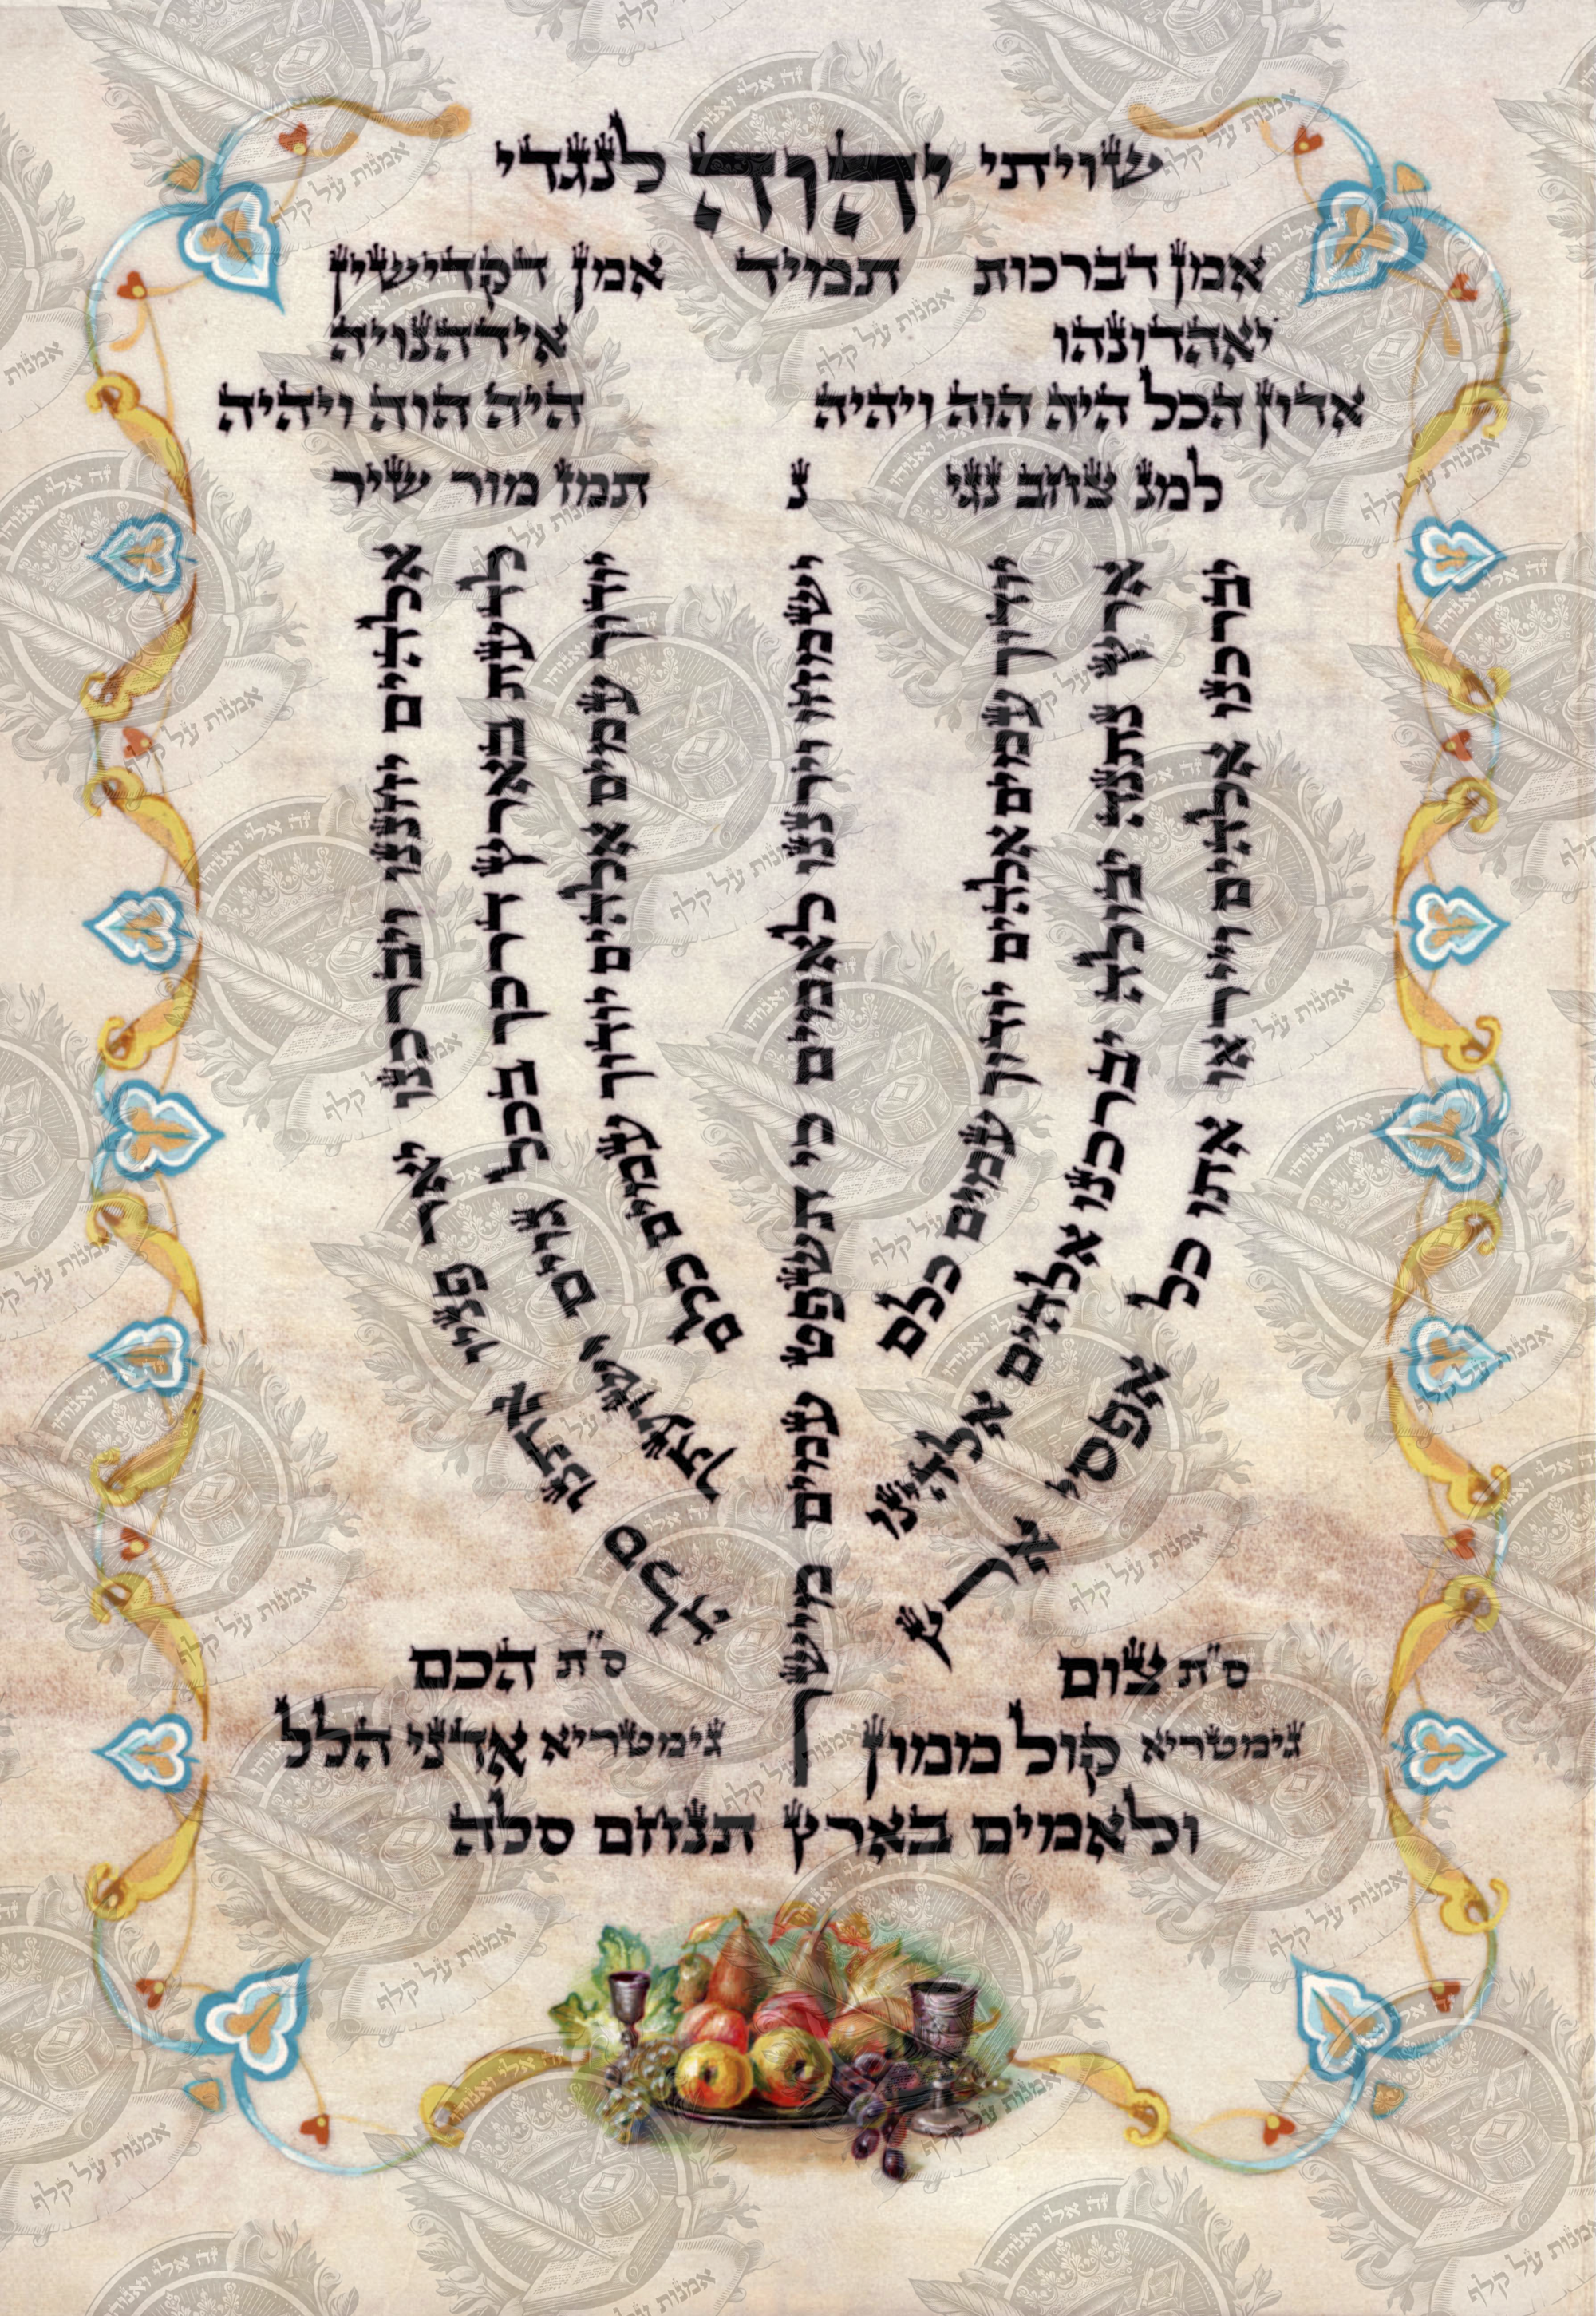 שויתי יהוה לנגדי
אמן דברכות תמיד אמן דקדישין
יאהדונהו אידהנויה
אדון הכל היה הוה ויהיה היה הוה ויהיה
למנ צחב נגי נ תמז מור שיר
יברכנו אלהים וייראו אתו כל אפסי ארץ
ארץ נתנה יבולה יברכנו אלהים אלהינו
יודוך עמים אלהים יודוך עמים כלם
ישמחו וירננו לאמים כי תשפט עמים מישר
יודוך עמים אלהים יודוך עמים כלם
לדעת בארץ דרכך בכל גוים ישועתך
אלהים יחננו ויברכנו יאר פניו אתנו סלה
ס"ת צום ס"ת הכם
גימטריא קול ממון גימטריא אדני הלל
ולאמים בארץ תנחם סלה
זה אלי ואנוהו
אמנות על קלף